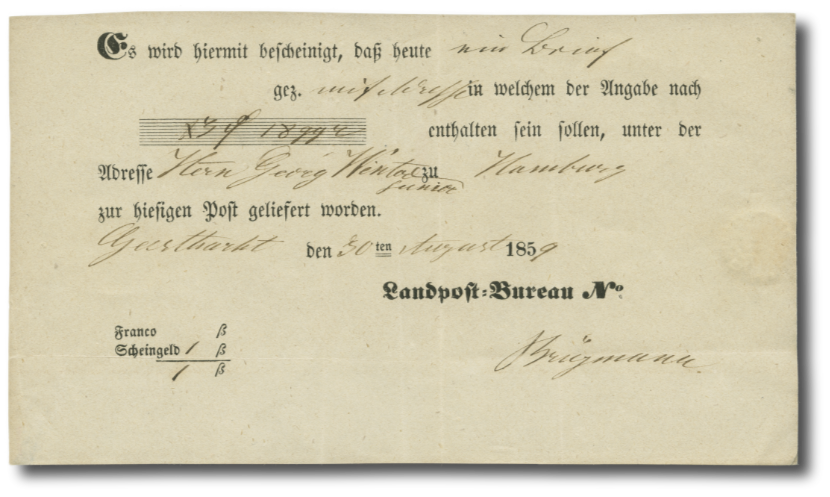 Es wird hiermit bescheinigt, daß heute ein Brief
gez. mit Adresse in welchem der Angabe nach
enthalten sein sollen, unter der
Adresse Herrn Georg zu Hamburg
junior
zur hiesigen Post geliefert worden.
Geesthacht den 30ten August 1859
Landpost-Bureau No.
Franco ß
Scheingeld 1 ß
1 ß
Brügmann.